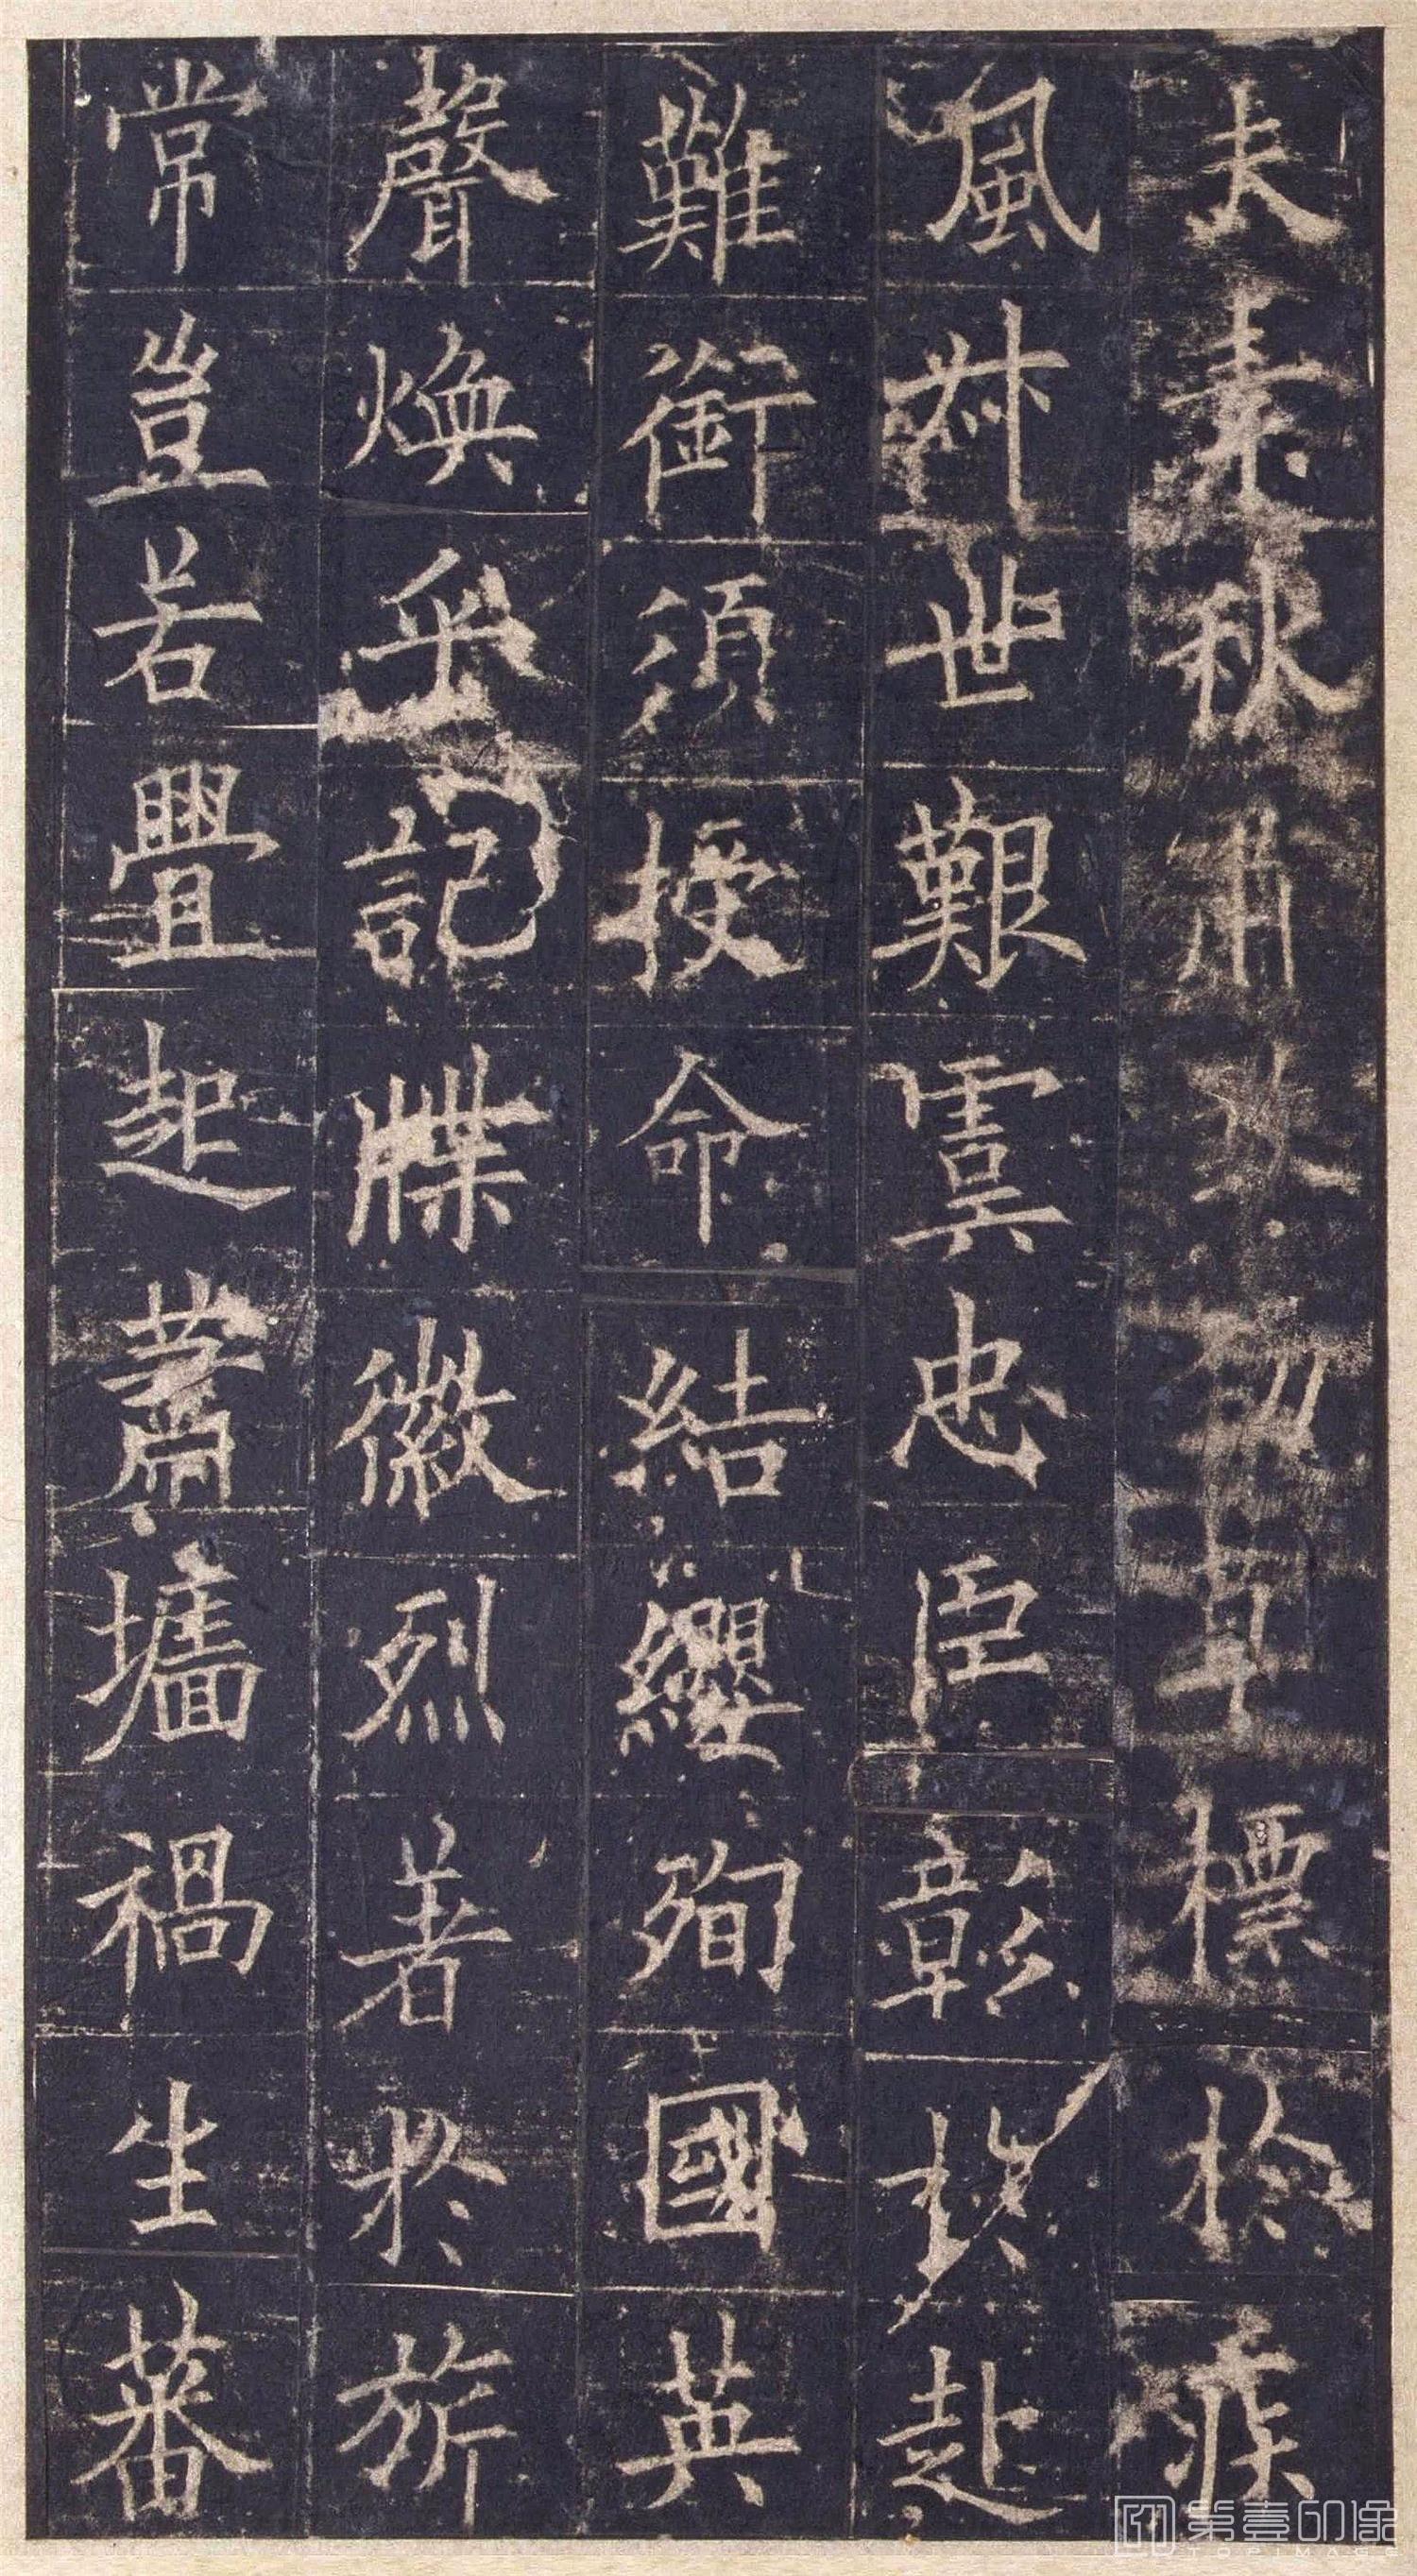 夫素秋肅勁草標於疾
風叔世艱虞忠臣彰於赴
難銜須授命結纓殉國英
聲煥乎記牒徽烈著於旂
常豈若舋起蕭墻禍生蕃
第壹印像
TOPIMAGE